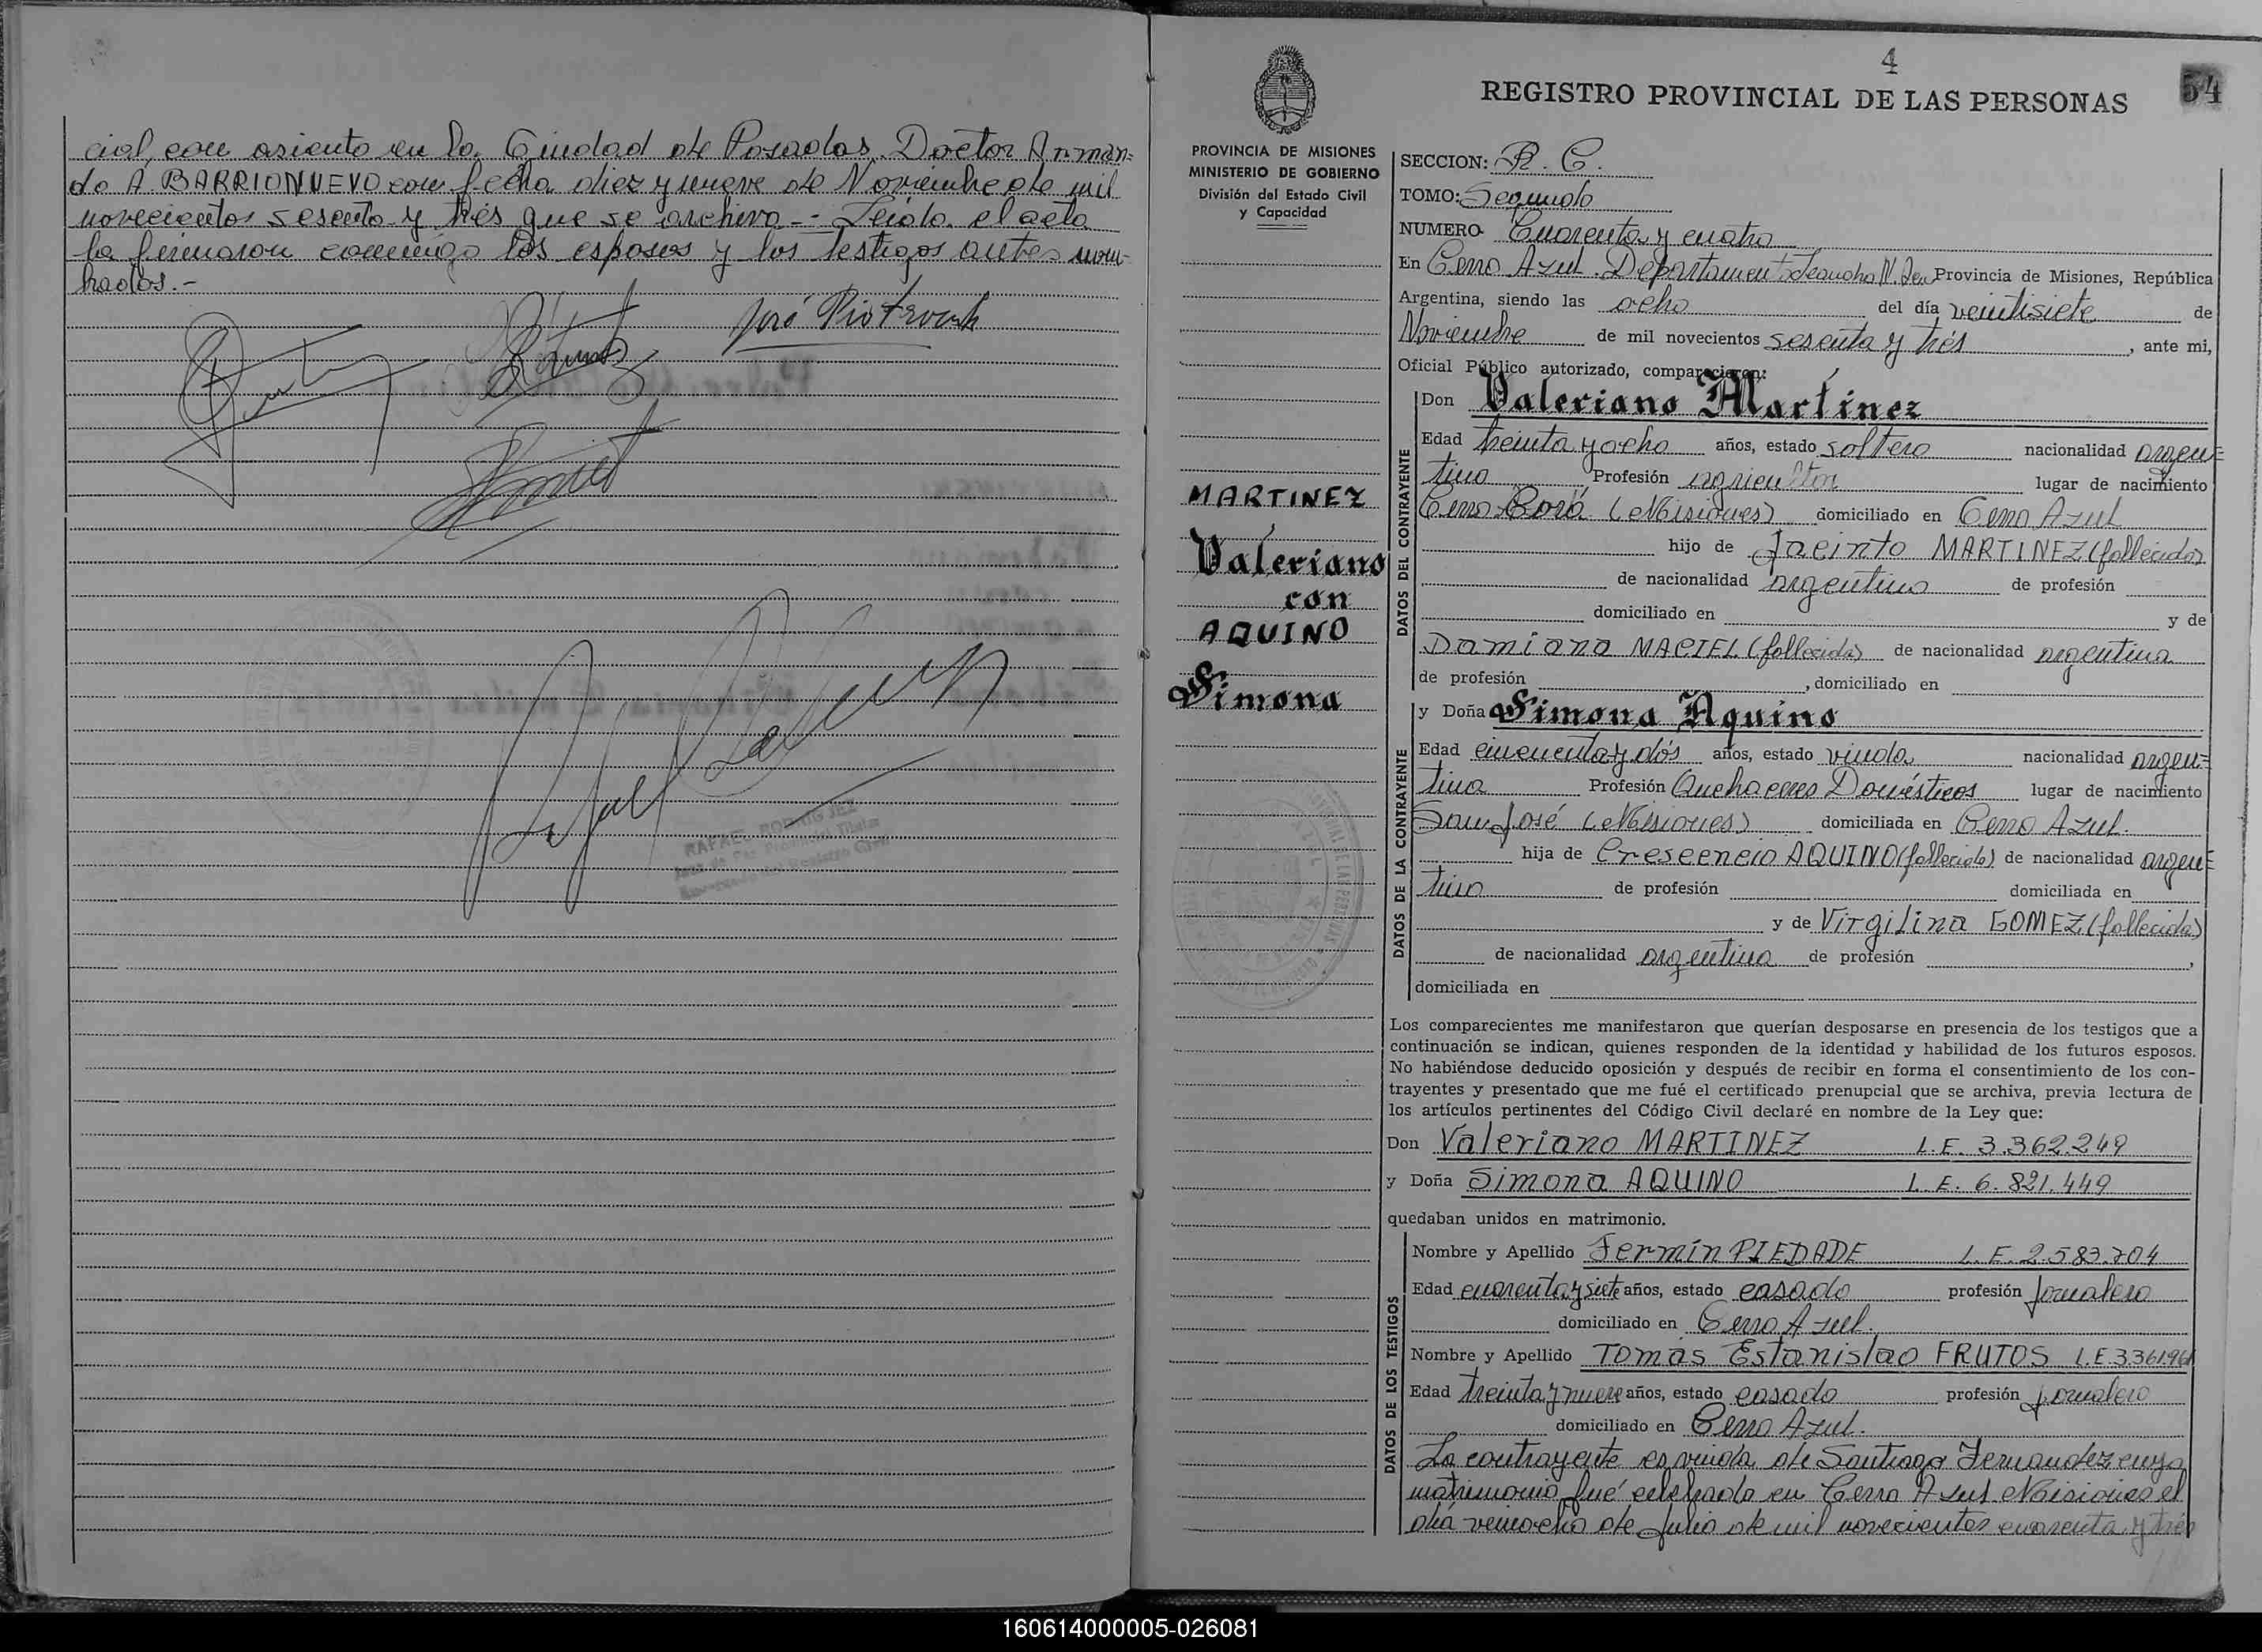 cial, con asiento en la Ciudad de Posadas, Doctor Arman=
do A BARRIONUEVO con fecha diez y nueve de Noviembre de mil
novecientos sesenta y trés que se archiva.- Leida el acta
la firmaron conmigo los esposos y los testigos antes nom-
brados.-
RAFAEL RODRIGUEZ
4
54
REGISTRO PROVINCIAL DE LAS PERSONAS
PROVINCIA DE MISIONES
MINISTERIO DE GOBIERNO
División del Estado Civil
y Capacidad
MARTINEZ
Valeriano
con
AQUINO
Simona
SECCION: R. C.
TOMO: Segundo
NUMERO Cuarenta y cuatro
En Cerro Azul. Departamento Leandro N. Alem Provincia de Misiones, República
Argentina, siendo las ocho del día veintisiete de
Noviembre de mil novecientos sesenta y trés, ante mi,
Oficial Público autorizado, comparecieron:
DATOS DEL CONTRAYENTE
Don Valeriano Martinez
Edad treinta y ocho años, estado soltero nacionalidad argen=
tino Profesión agricultor lugar de nacimiento
Cerro Corá (Misiones) domiciliado en Cerro Azul
hijo de Jacinto MARTINEZ (fallecido)
de nacionalidad argentino de profesión
domiciliado en y de
Damiana MACIEL (fallecida) de nacionalidad argentina
de profesión , domiciliado en
DATOS DE LA CONTRAYENTE
y Doña Simona Aquino
Edad cincuenta y dós años, estado viuda nacionalidad argen=
tina Profesión Quehaceres Domésticos lugar de nacimiento
San José (Misiones) domiciliada en Cerro Azul.
hija de Crescencio AQUINO (fallecido) de nacionalidad argen=
tino de profesión domiciliada en
y de Virgilina GOMEZ (fallecida)
de nacionalidad argentina de profesión ,
domiciliada en
Los comparecientes me manifestaron que querían desposarse en presencia de los testigos que a
continuación se indican, quienes responden de la identidad y habilidad de los futuros esposos.
No habiéndose deducido oposición y después de recibir en forma el consentimiento de los con-
trayentes y presentado que me fué el certificado prenupcial que se archiva, previa lectura de
los artículos pertinentes del Código Civil declaré en nombre de la Ley que:
Don Valeriano MARTINEZ L.E. 3.362.249
y Doña Simona AQUINO L.E. 6.821.449
quedaban unidos en matrimonio.
DATOS DE LOS TESTIGOS
Nombre y Apellido Fermín PIEDADE L.E. 2.583.704
Edad cuarenta y siete años, estado casado profesión Jornalero
domiciliado en Cerro Azul.
Nombre y Apellido Tomás Estanislao FRUTOS L.E.
Edad treinta y nueve años, estado casado profesión jornalero
domiciliado en Cerro Azul.
La contrayente es viuda de Santiago Fernandez cuyo
matrimonio fué celebrado en Cerro Azul Misiones el
día de Julio de mil novecientos cuarenta y trés
160614000005-026081